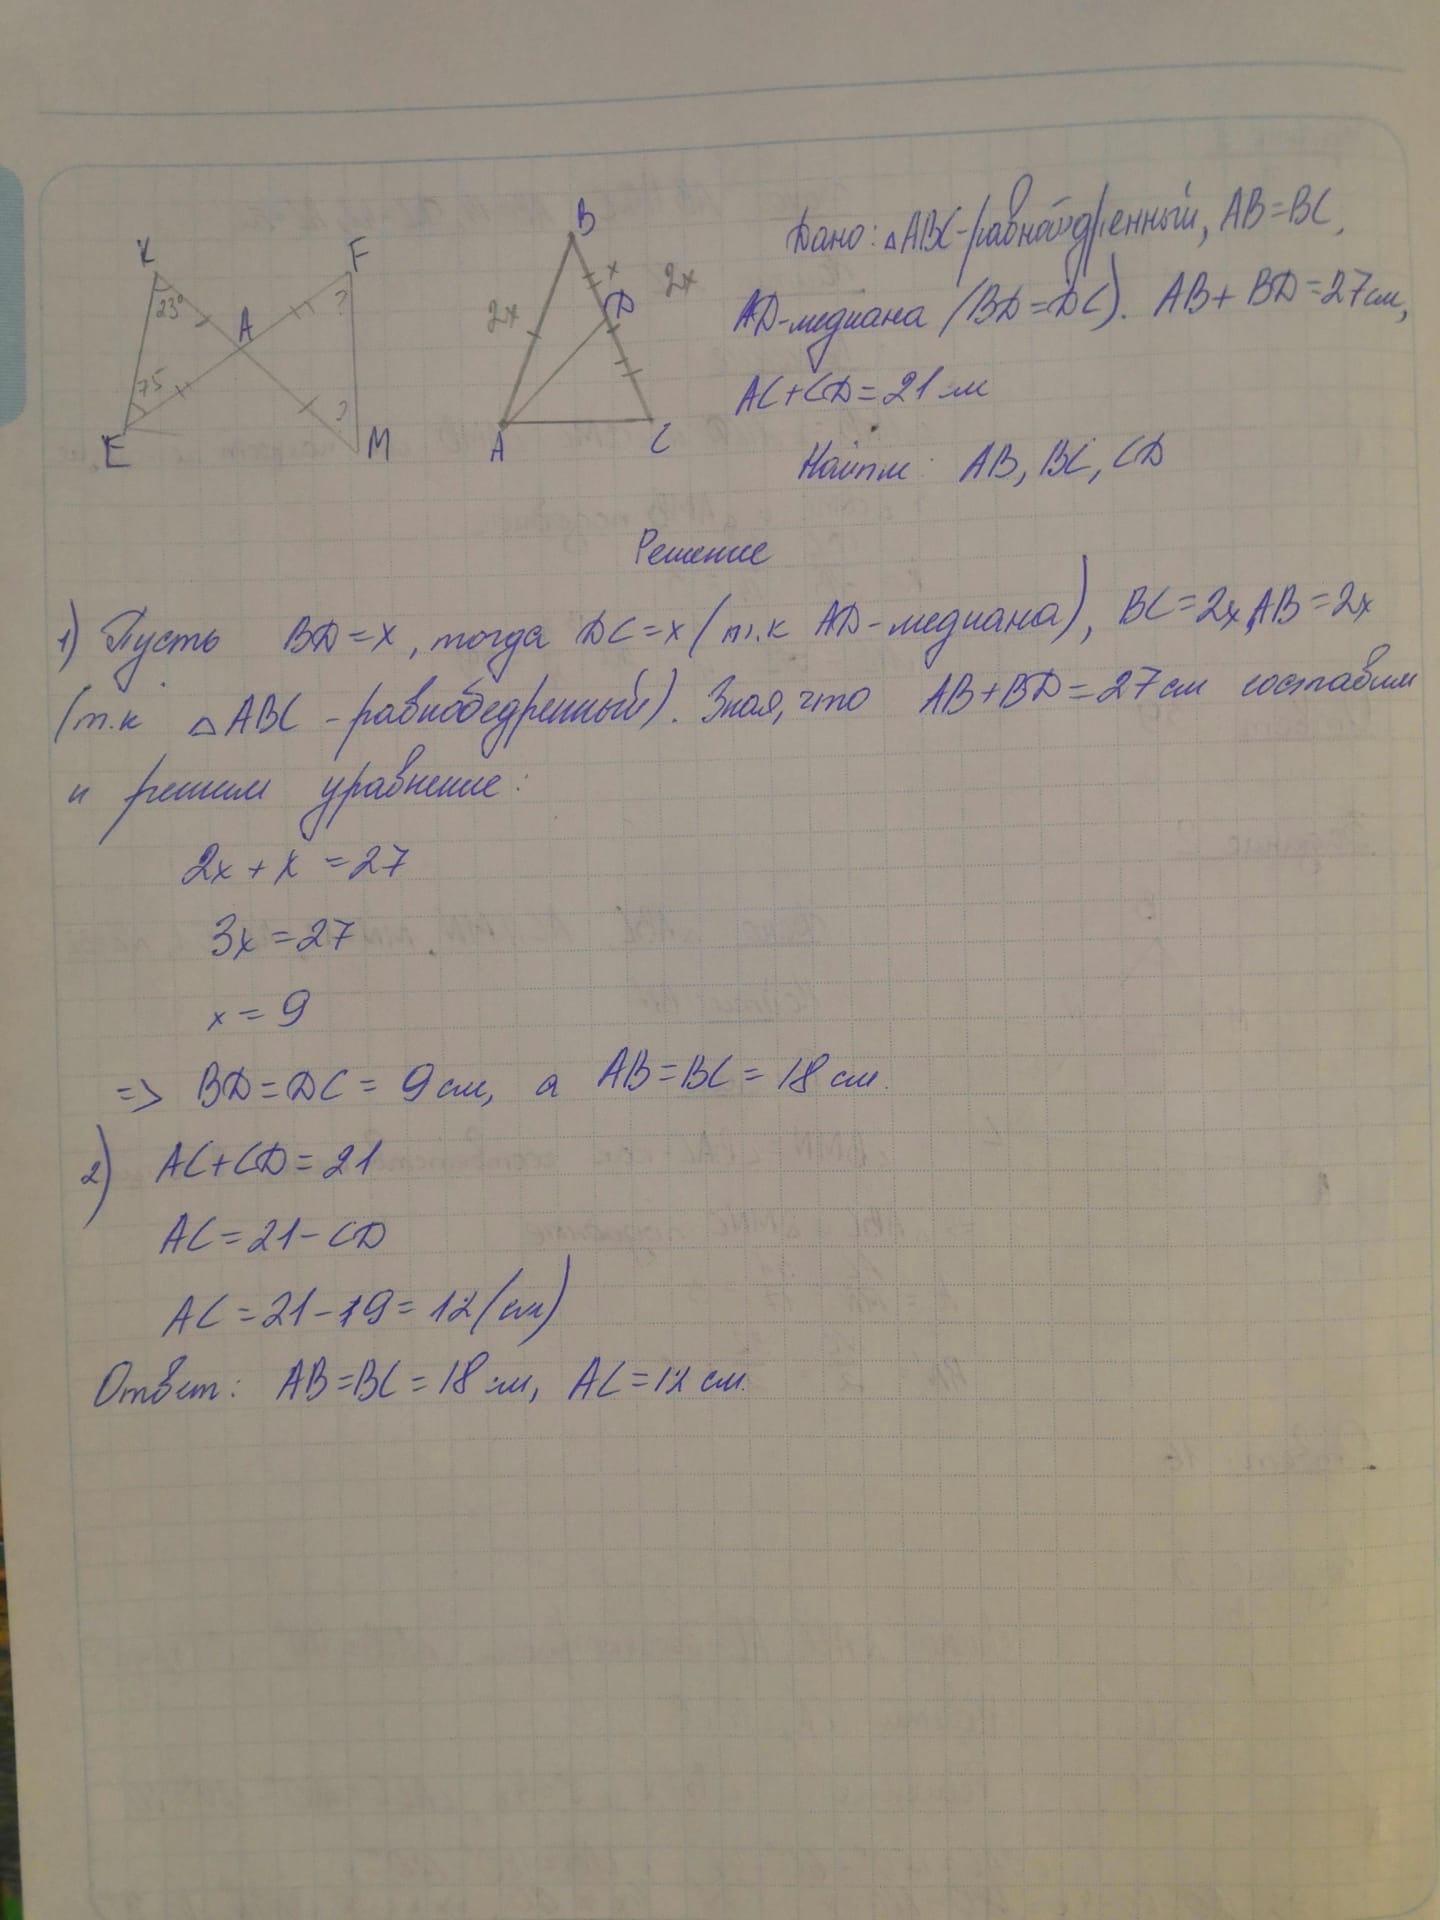 K
F
23°
A
75
?
?
E
M
B
x
2x
D
2x
A
C
Дано: △ABC - равнобедренный, AB = BC,
AD - медиана (BD = DC). AB + BD = 27 см,
AC + CD = 21 см
Найти: AB, BC, CD
Решение
1) Пусть BD = x, тогда DC = x (т.к AD - медиана), BC = 2x, AB = 2x
(т.к △ABC - равнобедренный). Зная, что AB + BD = 27 см составим
и решим уравнение:
2x + x = 27
3x = 27
x = 9
=> BD = DC = 9 см, а AB = BC = 18 см.
2) AC + CD = 21
AC = 21 - CD
AC = 21 - 19 = 12 (см)
Ответ: AB = BC = 18 см, AC = 12 см.